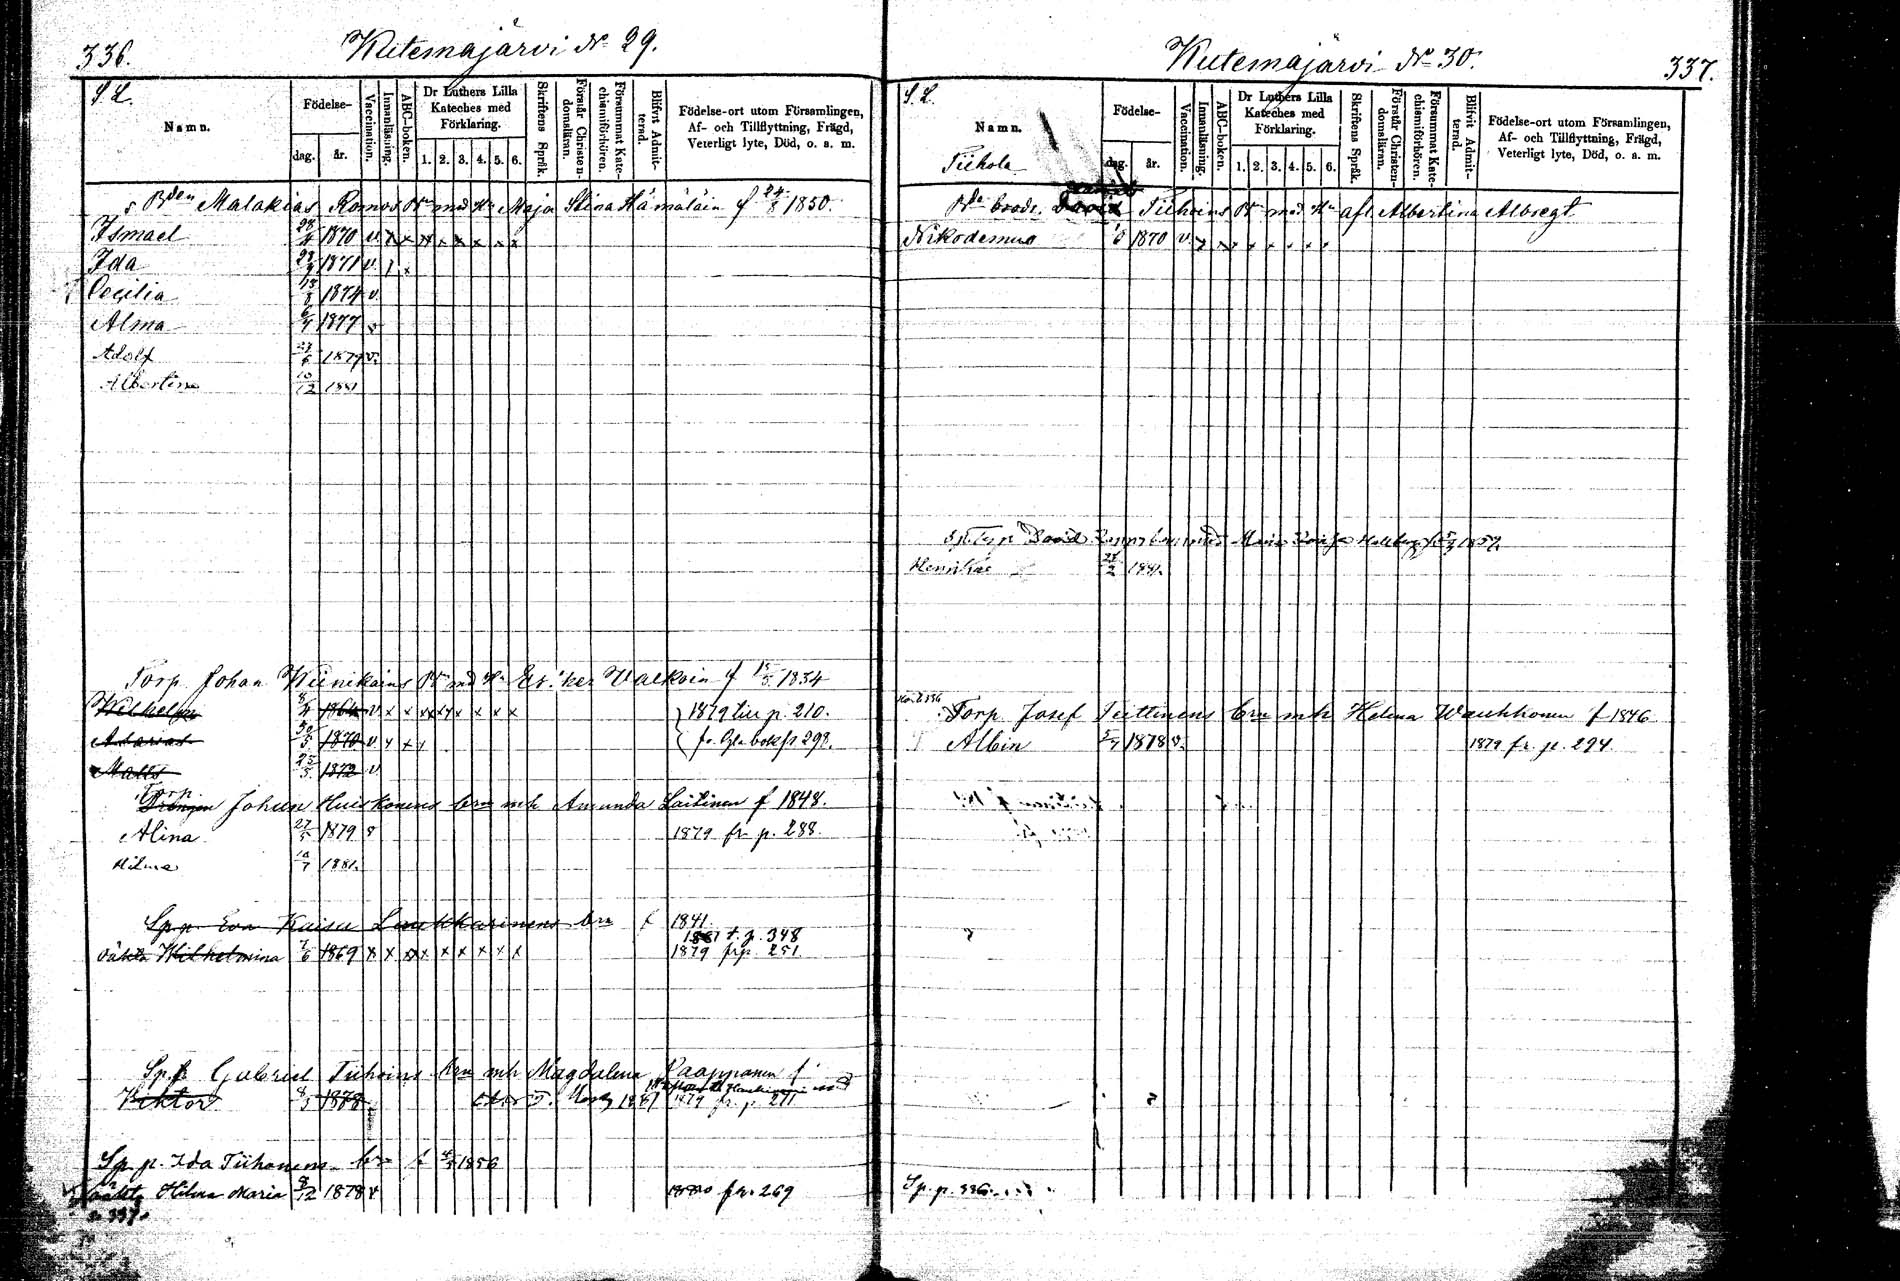 336.
Kutemajärvi No 29.
S. L.
Namn.
Födelse-
dag.
år.
Vaccination.
Innanläsning.
ABC-boken.
Dr Luthers Lilla Kateches med Förklaring.
1. 2. 3. 4. 5. 6.
Skriftens Språk.
Förstår Christendomsläran.
Försummat Katechismiförhören.
Blifvit Admitterad.
Födelse-ort utom Församlingen, Af- och Tillflyttning, Frägd, Veterligt lyte, Död, o. a. m.
Bden Malakias Romos Bn med Hu Maja Stina Hämäläin f 24/8 1850.
Ismael 1870 v x x x x x x x x
Ida 1871 v
Cecilia 13/8 1874 v.
Alma 6/4 1877 v
Adolf 1879 v.
Albertina 10/12 1881
Torp. Johan Wiinikains Bn md Hu Walkoin f 15/5 1834
Wilhelm 8/4 1864 v x x x x x x x x 1879 till p. 210.
1870 v x x fr. Gla bok p 298.
Matts 25/5 1872 v
Torp. Drängen Johan Huiskonens brn mh Amanda Laitinen f 1848.
Alina 27/5 1879 1879 fr p. 288.
Hilma 10/7 1881.
Sp.p. Eva Kaisa Laukkarinens brn f 1841.
1881 t. p. 348
oäkta Wilhelmina 7/6 1869 x x x x x x x x x 1879 fr p. 251.
Sp.p. Gabriel Tiihoins brn mh Magdalena Paappanen f
Viktor 8/5 1878 1879 fr. p. 271
Sp. p. Ida Tiihonens brn f 1856
oäkta Hilma Maria 8/12 1878 v 1880 fr. 269
s. 337.
Kutemajärvi No 30.
337.
S. L.
Namn.
Tiihola
Födelse-
dag.
år.
Vaccination.
Innanläsning.
ABC-boken.
Dr Luthers Lilla Kateches med Förklaring.
1. 2. 3. 4. 5. 6.
Skriftens Språk.
Förstår Christendomsläran.
Försummat Katechismiförhören.
Blifvit Admitterad.
Födelse-ort utom Församlingen, Af- och Tillflyttning, Frägd, Veterligt lyte, Död, o. a. m.
Bde brodr. David Tiihoins Bn med Hu afl Albertina Albregt
Nikodemus 1870 v. x x x x x x x x
David med Maria Hallberg 1852.
Henrika 1881.
Torp. Josef Teittinens brn mh Helena Wauhkonen f 1846
Albin 5/7 1878 v. 1879 fr. p. 294.
Sp. p. 336.